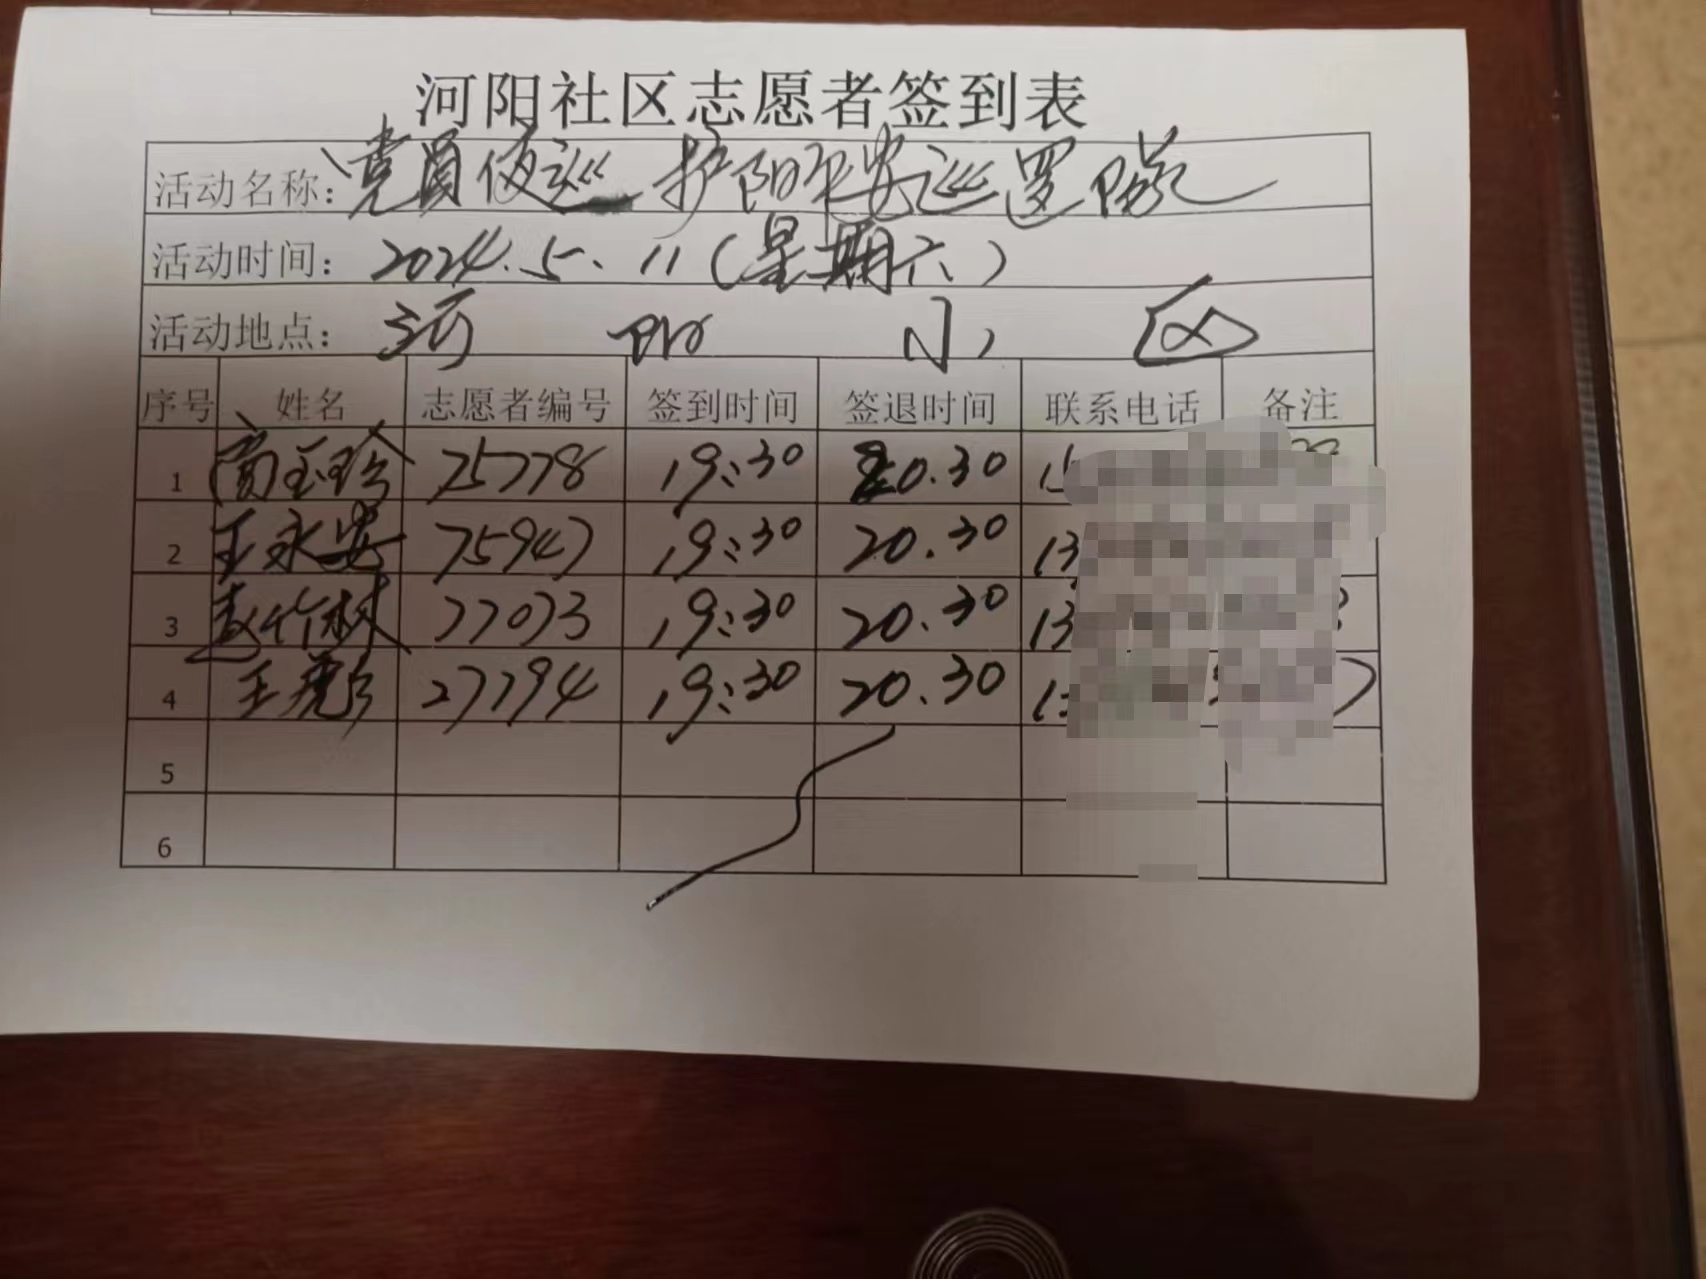 河阳社区志愿者签到表
活动名称：党员夜巡 护阳平安巡逻队
活动时间：2024.5.11（星期六）
活动地点：河阳小区
序号 姓名 志愿者编号 签到时间 签退时间 联系电话 备注
1 玉珍 75778 19:30 20.30 15
2 王永安 75947 19:30 20.30 13
3 赵竹林 77073 19:30 20.30 13
4 王 27794 19:30 20.30 13
5
6